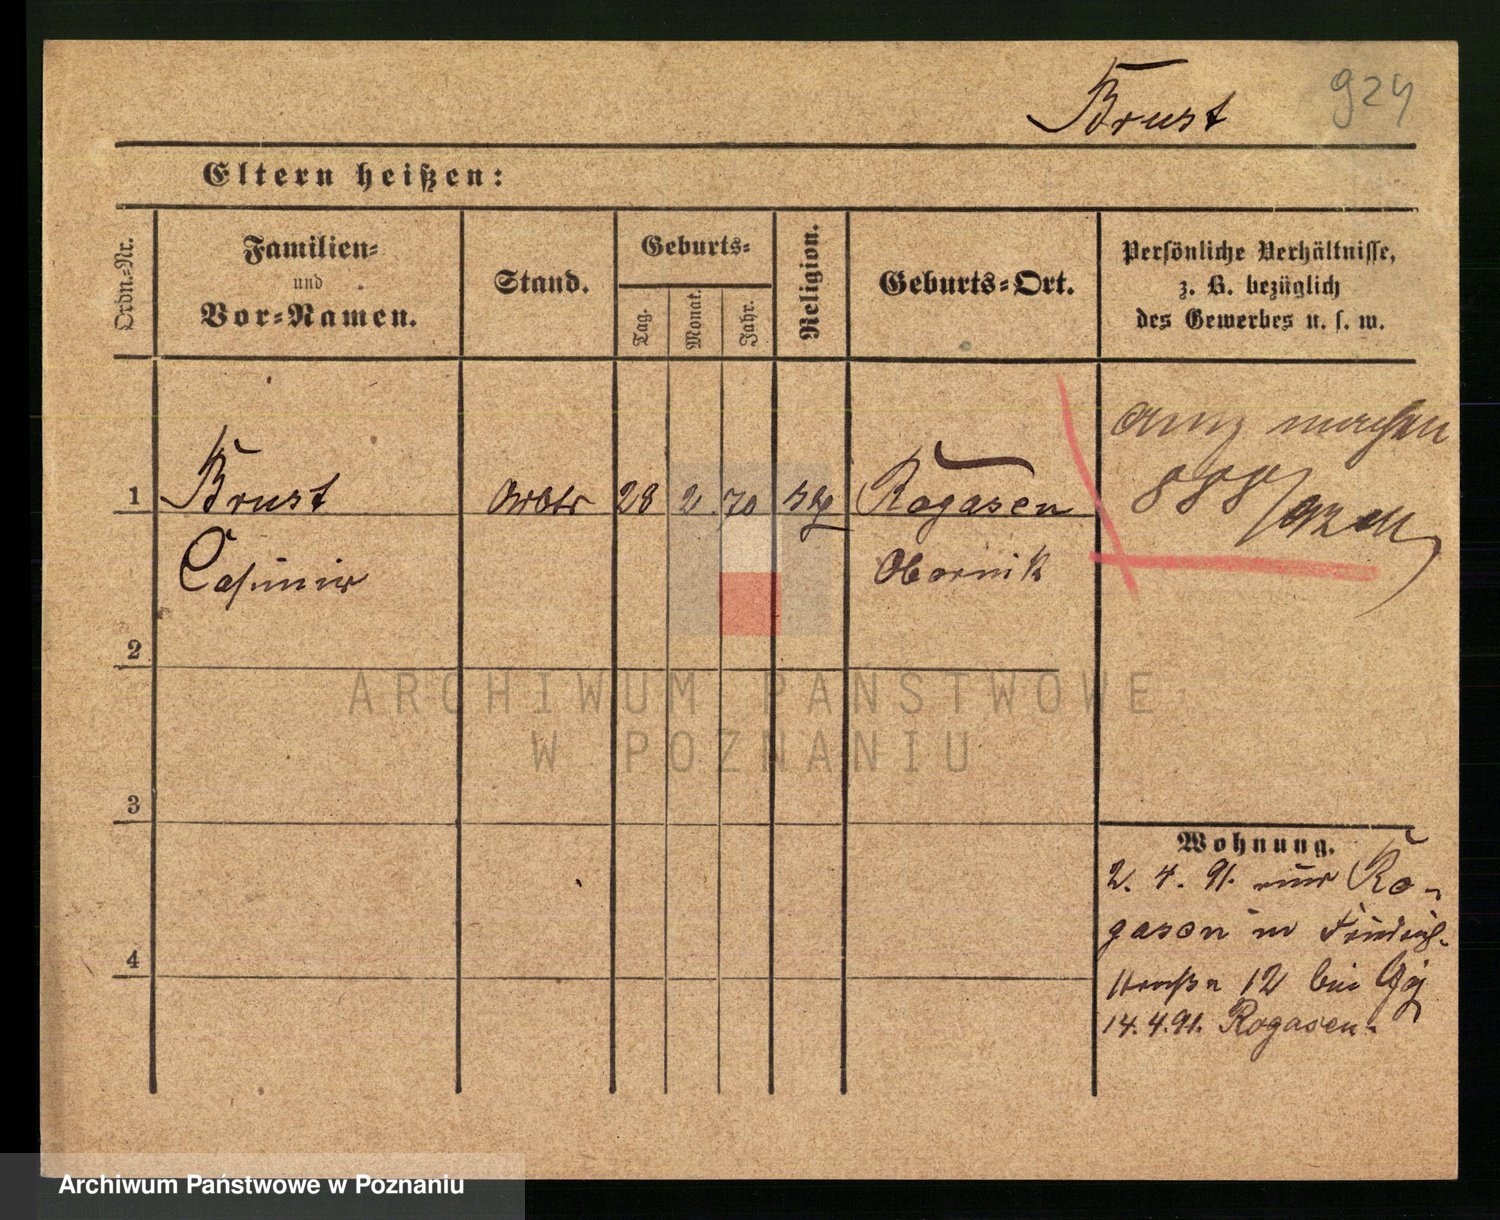 924
Brust
Eltern heißen:
Ordn.-Nr.
Familien-
und
Vor-Namen.
Stand.
Geburts-
Tag.
Monat.
Jahr.
Religion.
Geburts-Ort.
Persönliche Verhältnisse,
z. B. bezüglich
des Gewerbes u. s. w.
1
Brust
Arbtr
28
2.
70
Rogasen
888/92
Casimir
Obornik
2
ARCHIWUM PAŃSTWOWE
W POZNANIU
3
Wohnung.
2. 4. 91. aus Ro-
gasen in Friedrich-
straße 12 bei
4
14. 4. 91. Rogasen.
Archiwum Państwowe w Poznaniu